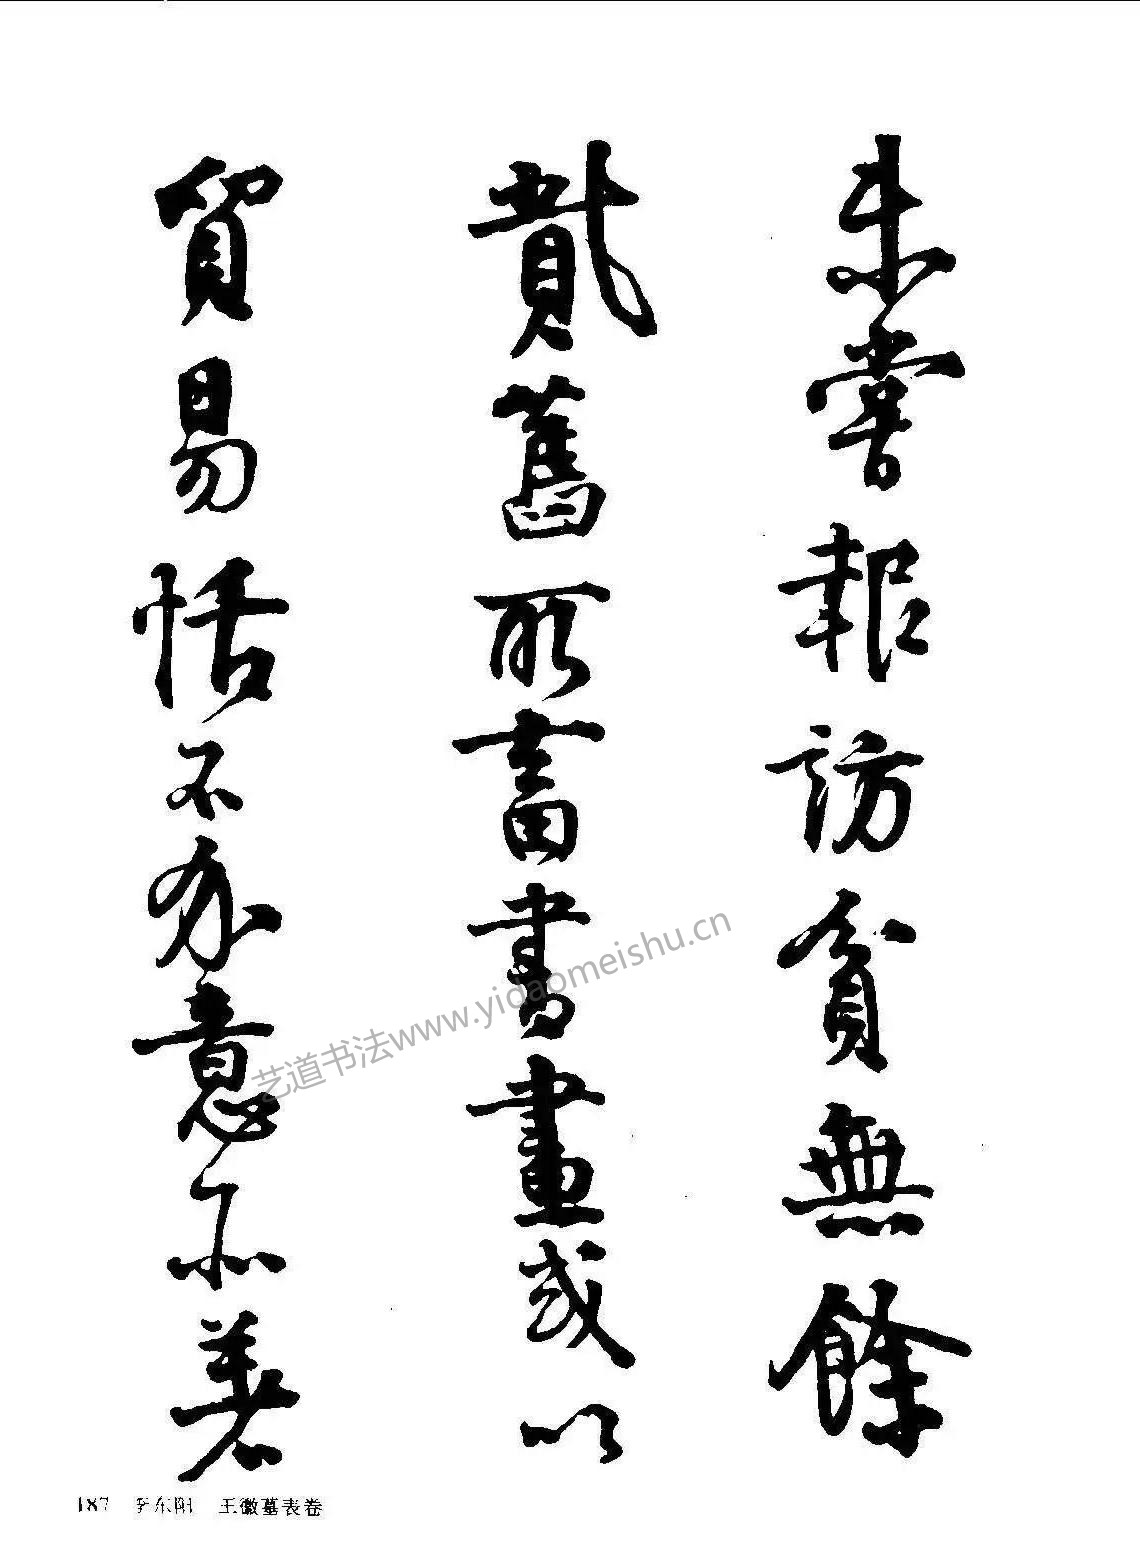 未嘗報訪貧無餘
貳舊所畜書畫或以
貿易恬不介意所著
187 李东阳 王徽墓表卷
艺道书法www.yidaomeishu.cn